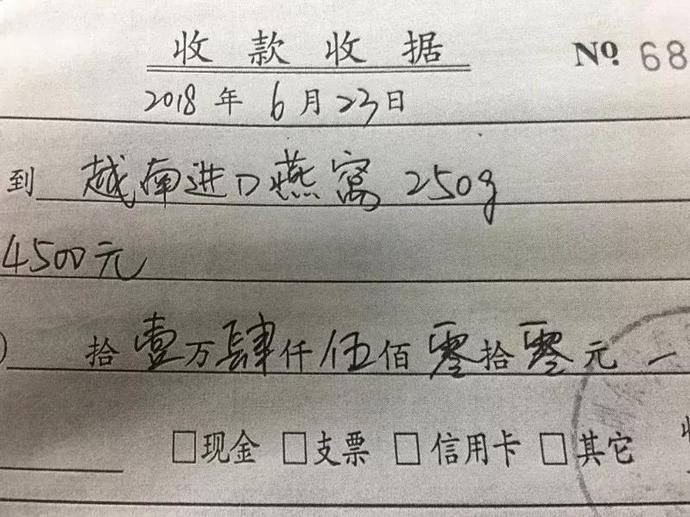 收款收据 № 68
2018年6月23日
到 越南进口燕窝 250g
4500元
拾壹万肆仟伍佰零拾零元
□现金 □支票 □信用卡 □其它